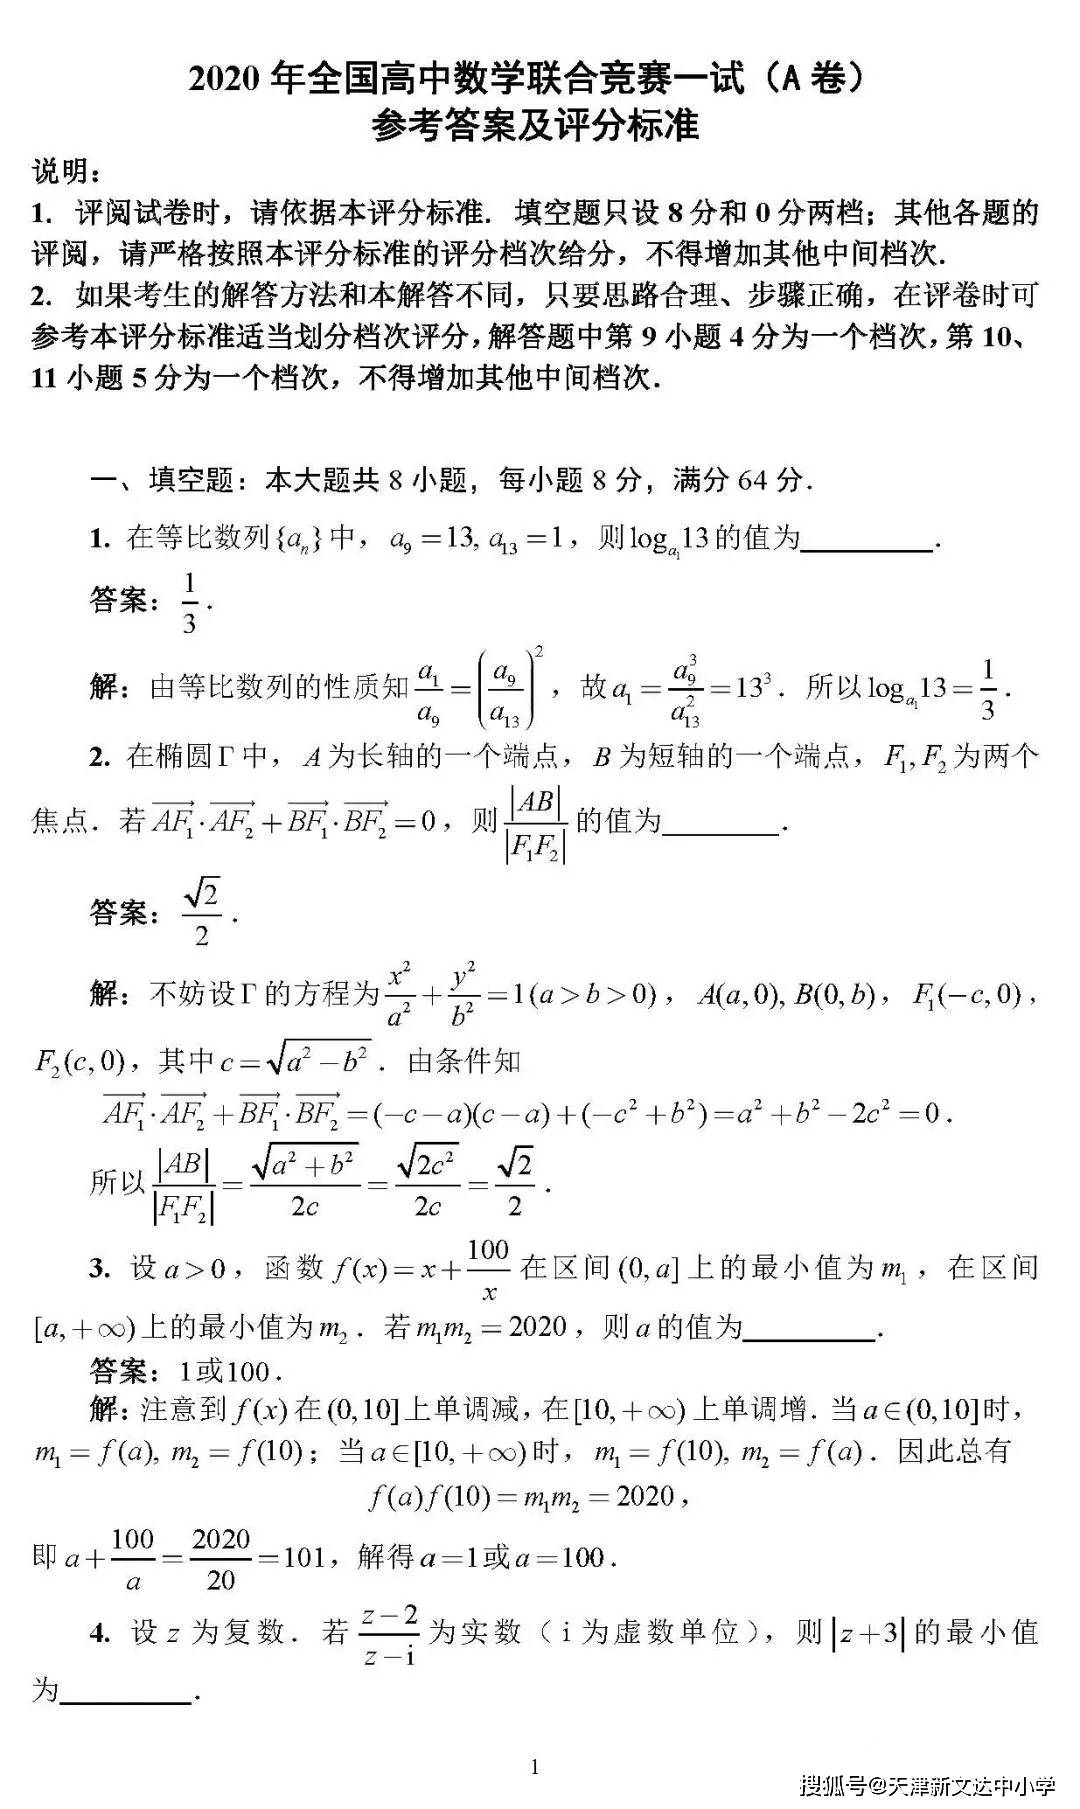 2020 年全国高中数学联合竞赛一试（A 卷）
参考答案及评分标准
说明：
1. 评阅试卷时，请依据本评分标准．填空题只设 8 分和 0 分两档；其他各题的
评阅，请严格按照本评分标准的评分档次给分，不得增加其他中间档次．
2. 如果考生的解答方法和本解答不同，只要思路合理、步骤正确，在评卷时可
参考本评分标准适当划分档次评分，解答题中第 9 小题 4 分为一个档次，第 10、
11 小题 5 分为一个档次，不得增加其他中间档次．
一、填空题：本大题共 8 小题，每小题 8 分，满分 64 分．
1. 在等比数列 {a_n} 中，a_9 = 13, a_13 = 1，则 log_{a_1} 13 的值为________．
答案：1/3．
解：由等比数列的性质知 a_1/a_9 = (a_9/a_13)^2，故 a_1 = a_9^3/a_13^2 = 13^3．所以 log_{a_1} 13 = 1/3．
2. 在椭圆 Γ 中，A 为长轴的一个端点，B 为短轴的一个端点，F_1, F_2 为两个
焦点．若 \overrightarrow{AF_1}·\overrightarrow{AF_2} + \overrightarrow{BF_1}·\overrightarrow{BF_2} = 0，则 |AB|/|F_1F_2| 的值为________．
答案：√2/2．
解：不妨设 Γ 的方程为 x²/a² + y²/b² = 1 (a > b > 0)，A(a, 0), B(0, b)，F_1(−c, 0)，
F_2(c, 0)，其中 c = √(a² − b²)．由条件知
\overrightarrow{AF_1}·\overrightarrow{AF_2} + \overrightarrow{BF_1}·\overrightarrow{BF_2} = (−c − a)(c − a) + (−c² + b²) = a² + b² − 2c² = 0．
所以 |AB|/|F_1F_2| = √(a² + b²)/2c = √(2c²)/2c = √2/2．
3. 设 a > 0，函数 f(x) = x + 100/x 在区间 (0, a] 上的最小值为 m_1，在区间
[a, +∞) 上的最小值为 m_2．若 m_1m_2 = 2020，则 a 的值为________．
答案：1或100．
解：注意到 f(x) 在 (0, 10] 上单调减，在 [10, +∞) 上单调增．当 a∈(0, 10] 时，
m_1 = f(a), m_2 = f(10)；当 a∈[10, +∞) 时，m_1 = f(10), m_2 = f(a)．因此总有
f(a)f(10) = m_1m_2 = 2020，
即 a + 100/a = 2020/20 = 101，解得 a = 1 或 a = 100．
4. 设 z 为复数．若 (z − 2)/(z − i) 为实数（i 为虚数单位），则 |z + 3| 的最小值
为________．
1
搜狐号@天津新文达中小学